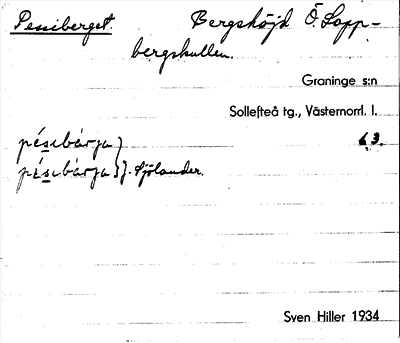 Pessiberget. Bergshöjd Ö. Lopp-
bergskullen.
Graninge s:n
Sollefteå tg., Västernorrl. l.
pésıbárja } 63.
pésıbárja } J. Sjölander.
Sven Hiller 1934